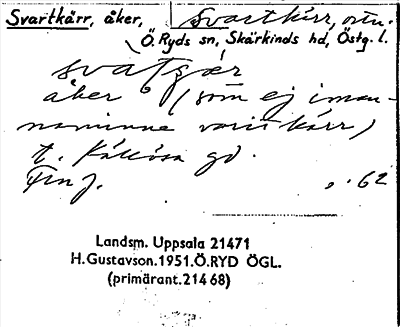 Svartkärr, åker, Svartkärr, ortn.
Ö. Ryds sn, Skärkinds hd, Östg. l.
svatçær
åker (som ej i man-
naminne varit kärr)
t. Källösa gd.
s. 62
Landsm. Uppsala 21471
H.Gustavson.1951.Ö.RYD ÖGL.
(primärant.21468)